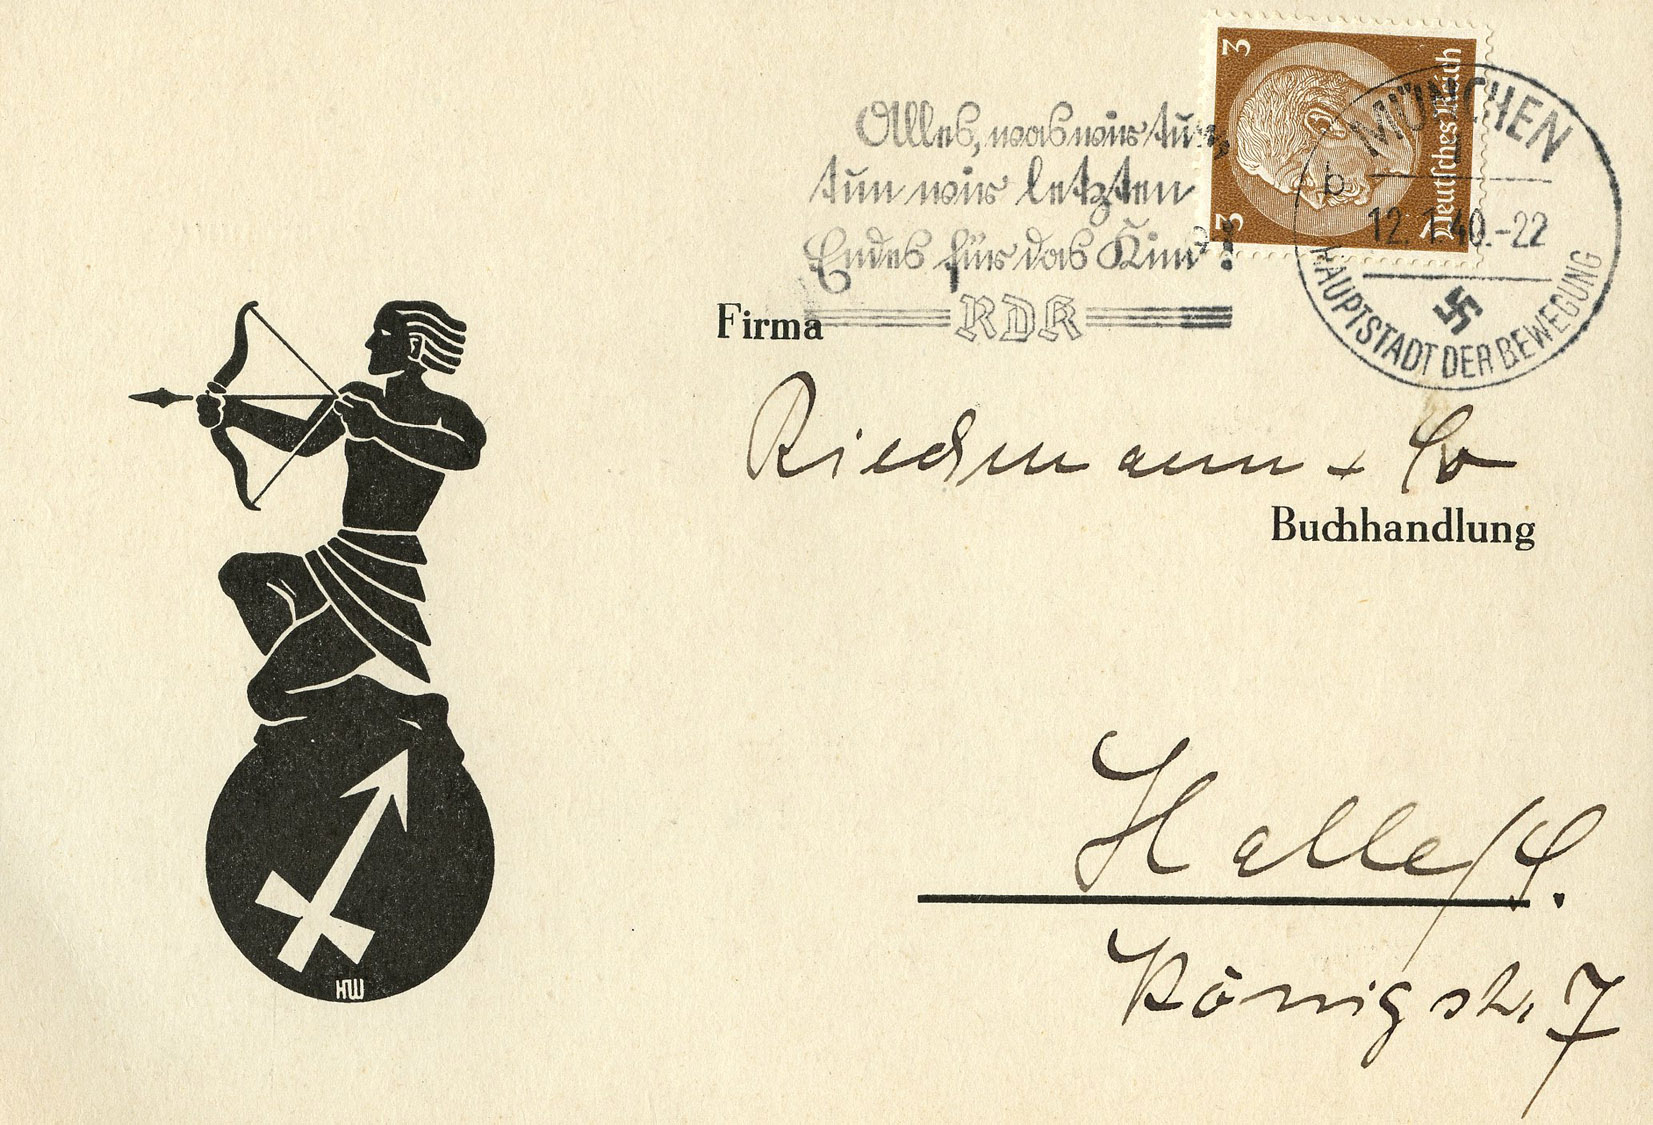 Alles, was wir tun,
tun wir letzten
Endes für das Kind!
RDK
3
3
Deutsches Reich
MÜNCHEN
b
12. 1.40.-22
HAUPTSTADT DER BEWEGUNG
Firma
Riedmann + Co
Buchhandlung
Halle/S.
Königstr. 7
HW